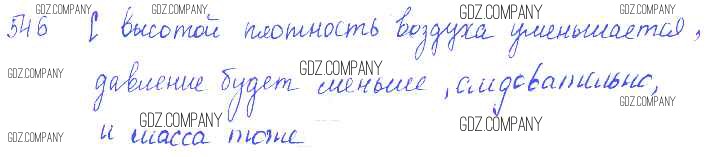 GDZ.COMPANY GDZ.COMPANY GDZ.COMPANY
546 С высотой плотность воздуха уменьшается,
GDZ.COMPANY GDZ.COMPANY
давление будет меньше, следовательно,
GDZ.COMPANY
GDZ.COMPANY GDZ.COMPANY
и масса тоже